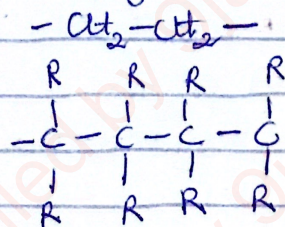 - CH2-CH2-
R R R R
-C-C-C-C
R R R R